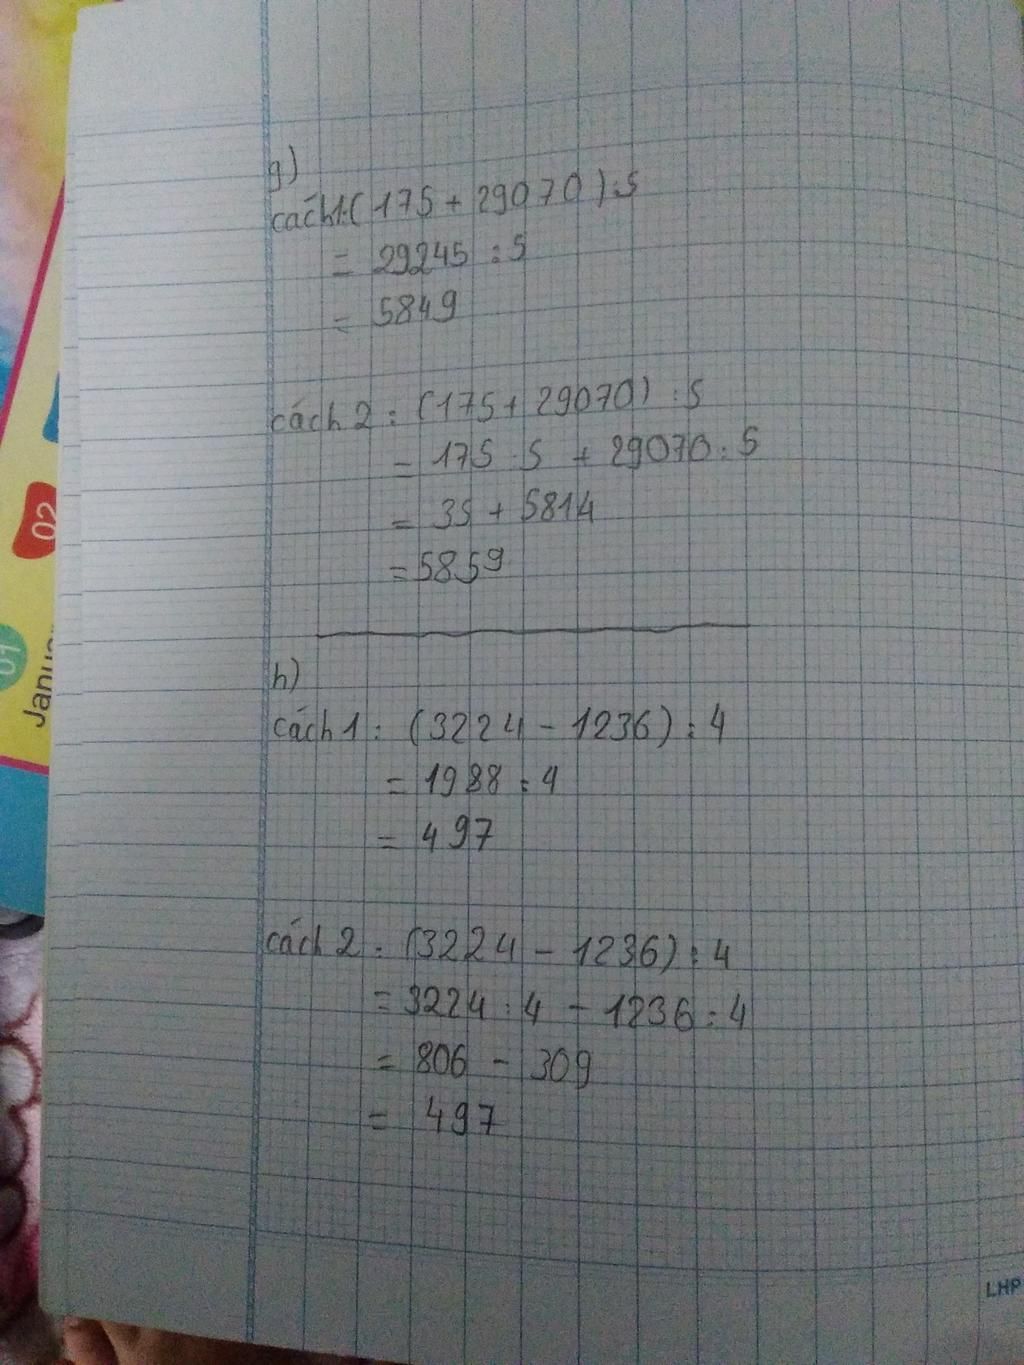 02
01
Janua
g)
cách1:(175 + 29070):5
= 29245 : 5
= 5849
cách 2 : (175 + 29070) : 5
= 175 : 5 + 29070 : 5
= 35 + 5814
= 5859
h)
cách 1 : (3224 - 1236) : 4
= 1988 : 4
= 497
cách 2 : (3224 - 1236) : 4
= 3224 : 4 - 1236 : 4
= 806 - 309
= 497
LHP